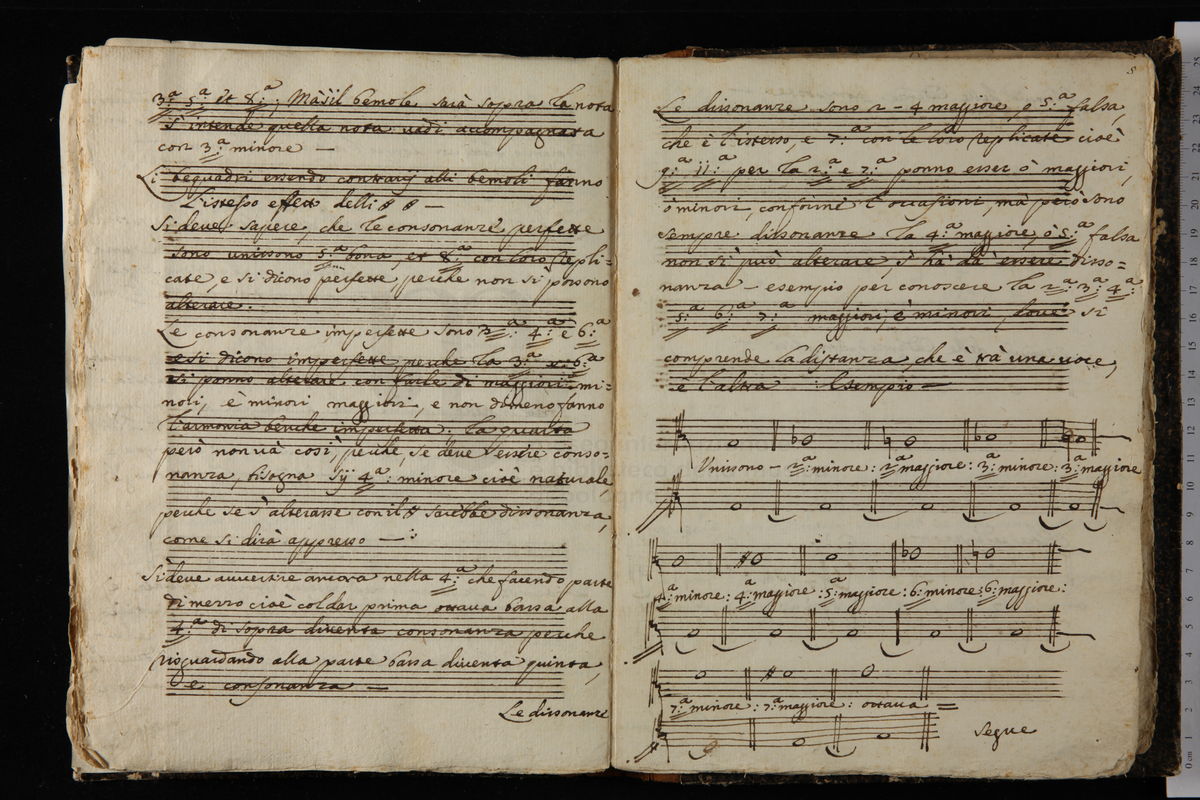 3:ª 5:ª et 8:ª; Mà s'il bemole sarà sopra la nota
s'intende quella nota vadi accompagnata
con 3:ª minore —
Li bequadri essendo contrarij alli bemoli fanno
l'istesso effetto delli # # —
Si deve sapere, che le consonanze perfette
sono unissono 5:ª bona, et 8:ª con loro repli=
cate, e si dicono perfette, perche non si possono
alterare.
Le consonanze imperfette sono 3:ª 4:ª e 6:ª
e si dicono imperfette perche la 3:ª e 6:ª
si ponno alterare con farle di maggiori mi=
nori, è minori maggiori, e non dimeno fanno
l'armonia benche imperfetta: la quarta
però non và così, perche, se deve essere conso=
nanza, bisogna sij 4:ª minore cioè naturale,
perche se s'alterasse con il # sarebbe dissonanza,
come si dirà appresso —:
Si deve avvertire ancora nella 4:ª che facendo parte
di mezzo cioè col dar prima ottava bassa alla
4:ª di sopra diventa consonanza perche
risguardando alla parte bassa diventa quinta,
e consonanza —
Le dissonanze
8
Le dissonanze sono 2 - 4 maggiore, ò 5:ª falsa,
che è l'istesso, e 7:ª con le loro replicate cioè
9:ª 11:ª per la 2:ª e 7:ª ponno esser ò maggiori,
ò minori, conforme l'occasioni, mà però sono
sempre dissonanze la 4:ª maggiore, ò 5:ª falsa
non si può alterare, s'hà da essere disso=
nanza — esempio per conoscere la 2:ª 3:ª 4:ª
5:ª 6:ª 7:ª maggiori, è minori, dove si
comprende la distanza, che è trà una voce,
è l'altra Esempio —
Unissono — 2:ª minore: 2:ª maggiore: 3:ª minore: 3:ª maggiore
4:ª minore: 4:ª maggiore: 5:ª maggiore: 6:ª minore: 6:ª maggiore:
7:ª minore: 7:ª maggiore: ottava =
segue